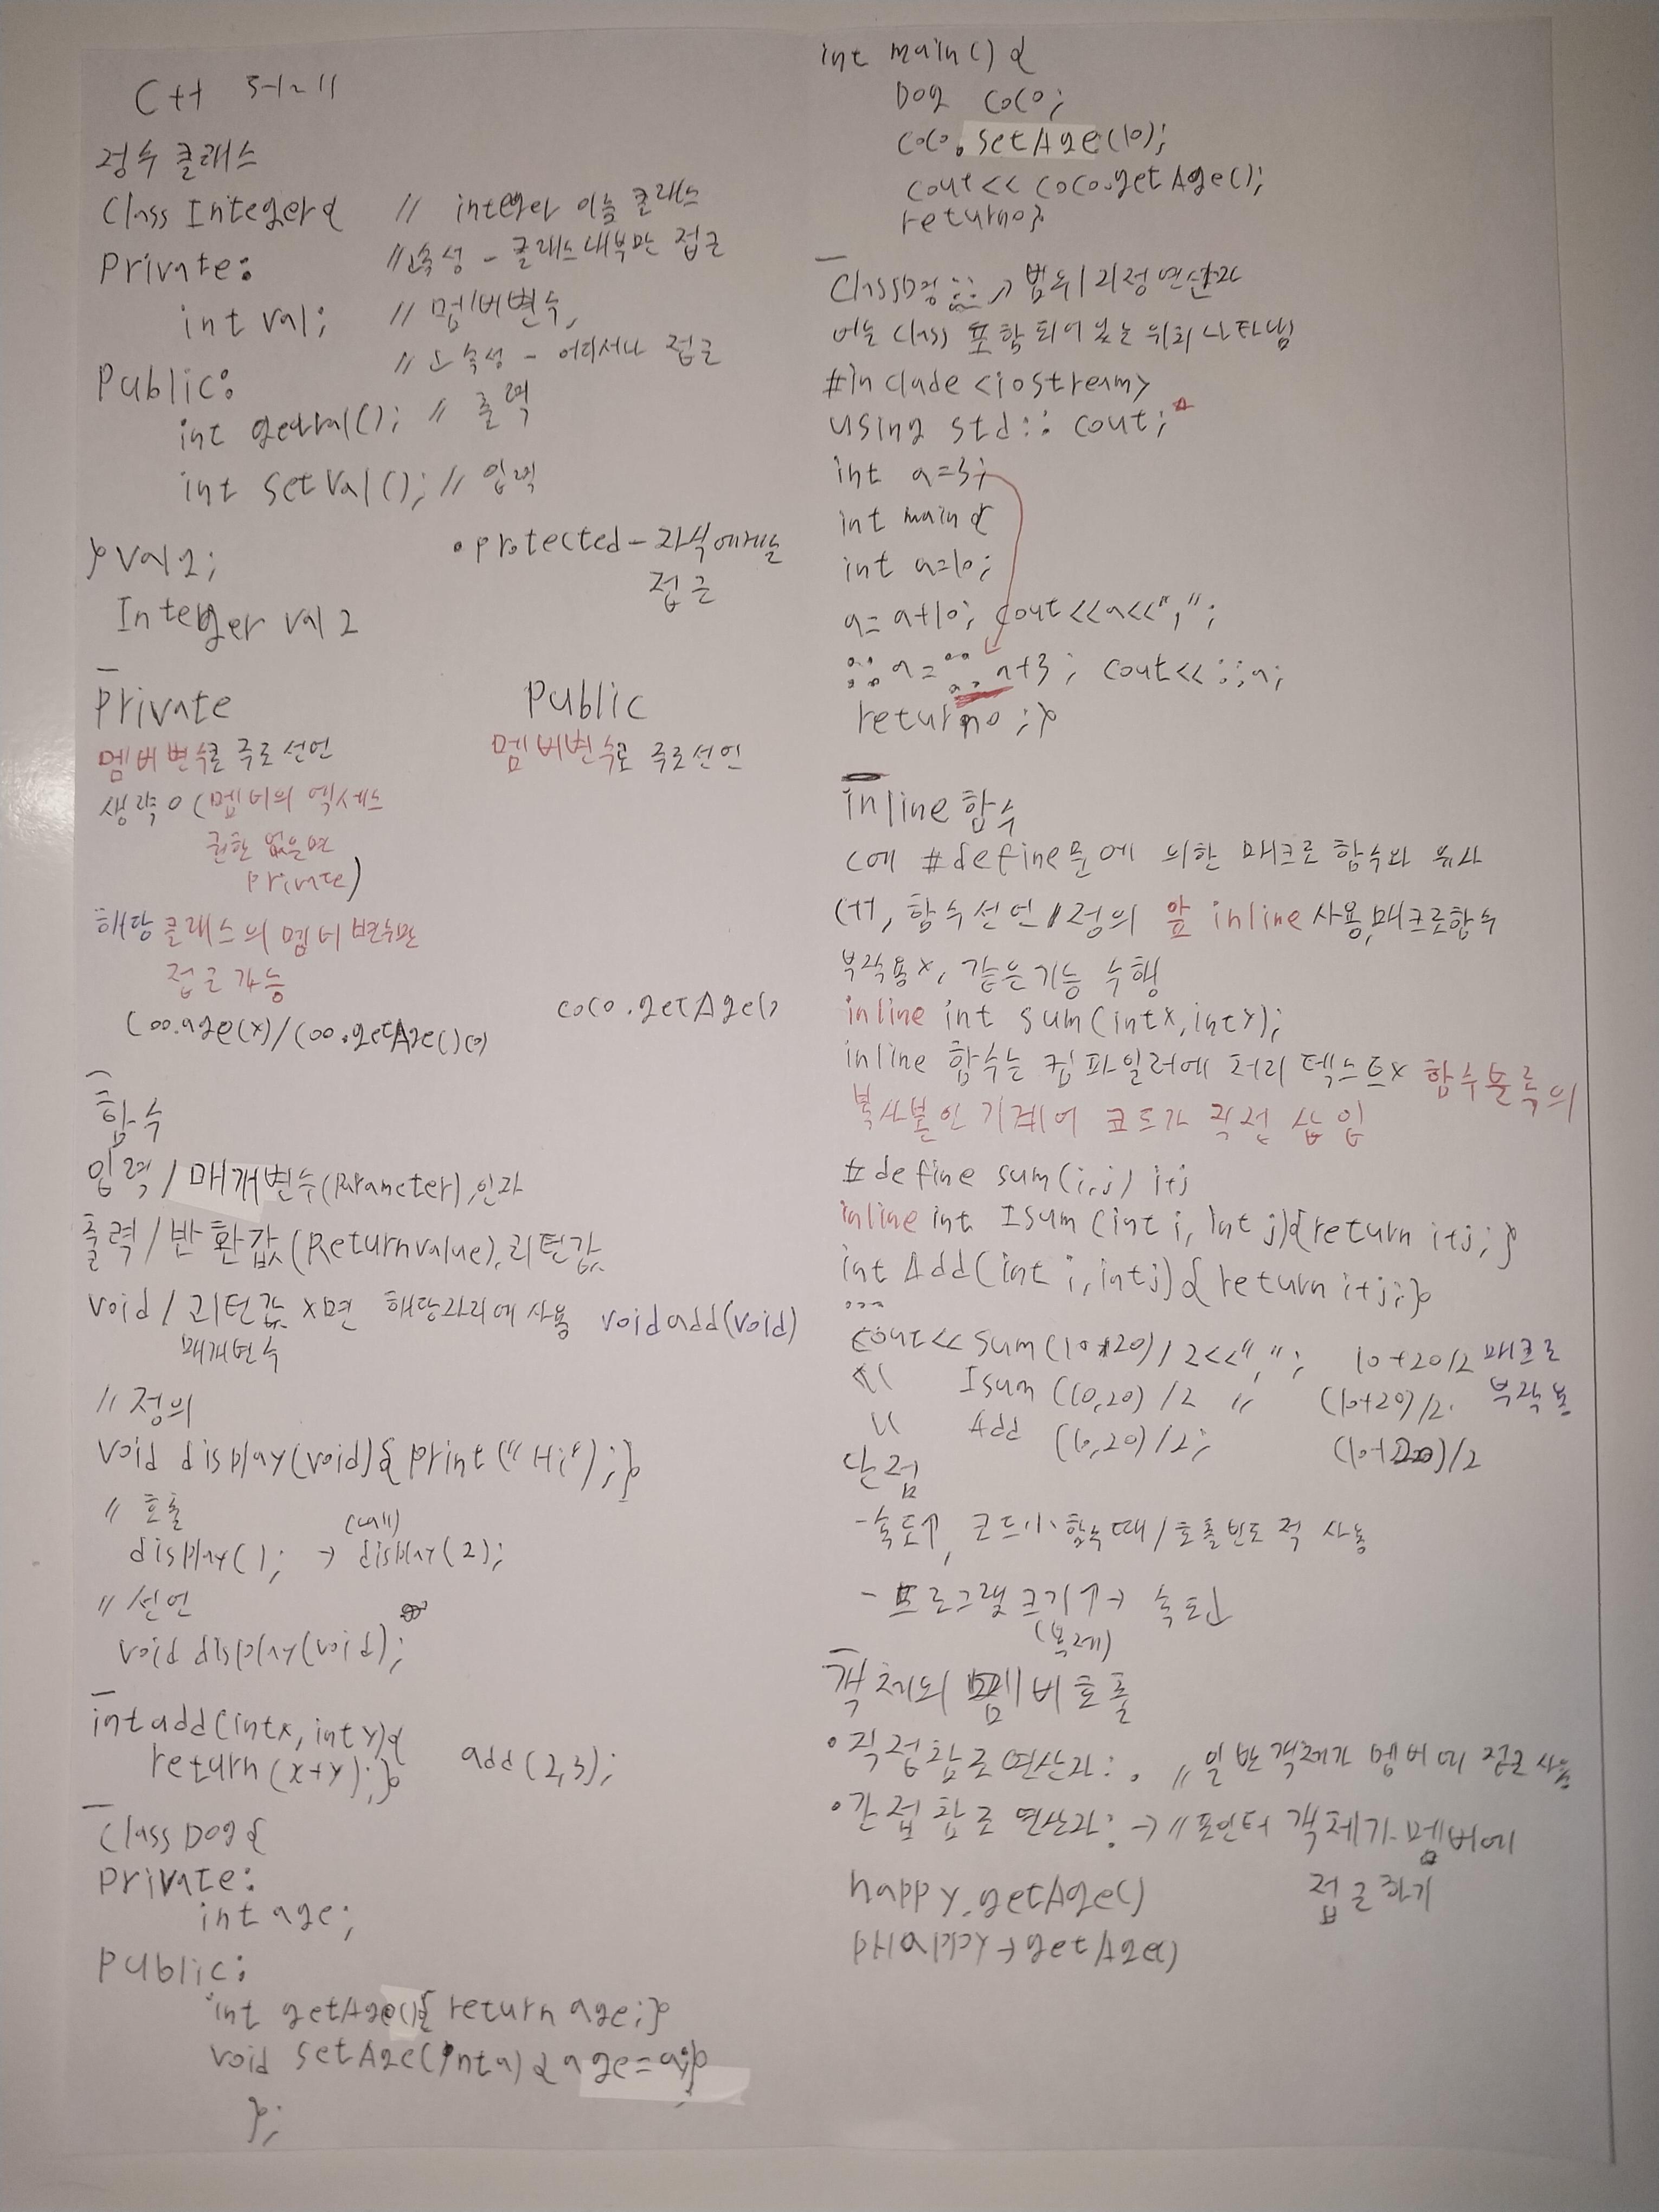 C++ 5-1~11
정수 클래스
Class Integer{ // integer 이름 클래스
Private: // 속성 - 클래스내부만 접근
int val; // 멤버변수,
// 속성 - 어디서나 접근
Public:
int getval(); // 출력
int setVal(); // 입력
• protected - 자식에게는
접근
}val2;
Integer val2
Private
멤버변수를 주로선언
생략 o (멤버의 엑세스
권한 없으면
private)
해당 클래스의 멤버 변수만
접근 가능
Coo.age(x)/Coo.getAge()(o)
Public
멤버변수로 주로선언
coco.getAge()
함수
입력 / 매개변수(Parameter), 인자
출력 / 반환값(Returnvalue), 리턴값
void / 리턴값 x면 해당자리에 사용 void add(void)
매개변수
// 정의
void display(void){print("Hi");}
// 호출 (call)
display(); → display(2);
// 선언
void display(void);
int add(intx, int y){
return(x+y);} add(2,3);
Class Dog{
private:
int age;
Public:
int getAge(){return age;}
void setAge(int a){age=a;}
};
int main(){
Dog coco;
coco.setAge(10);
cout<<coco.getAge();
return0}
Class명:: → 범위 지정연산자
어느 class 포함 되어 있는 위치 나타냄
#include <iostream>
using std::cout;
int a=3;
int main{
int a=10;
a=a+10; cout<<a<<",";
::a=::a+3; cout<<::a;
return0;}
inline 함수
C에 #define문에 의한 매크로 함수와 유사
C++, 함수선언/정의 앞 inline 사용, 매크로함수
부작용x, 같은기능 수행
inline int sum(intx,inty);
inline 함수는 컴파일러에 처리 텍스트x 함수블록의
복사본인 기계어 코드가 직접 삽입
#define sum(i,j) i+j
inline int Isum(int i, int j){return i+j;}
int Add(int i, intj){return i+j;}
...
cout<<sum(10,20)/2<<","; 10+20/2 매크로
〃 Isum (10,20)/2 〃 (10+20)/2. 부작용
〃 Add (10,20)/2; (10+20)/2
단점
- 속도↑, 코드小 함수때/호출빈도 적 사용
- 프로그램 크기↑→ 속도↓
(복제)
객체의 멤버호출
• 직접참조연산자: . // 일반객체가 멤버에 접근 사용
• 간접참조 연산자: → // 포인터 객체가 멤버에
접근하기
happy.getAge()
pHappy→getAge()